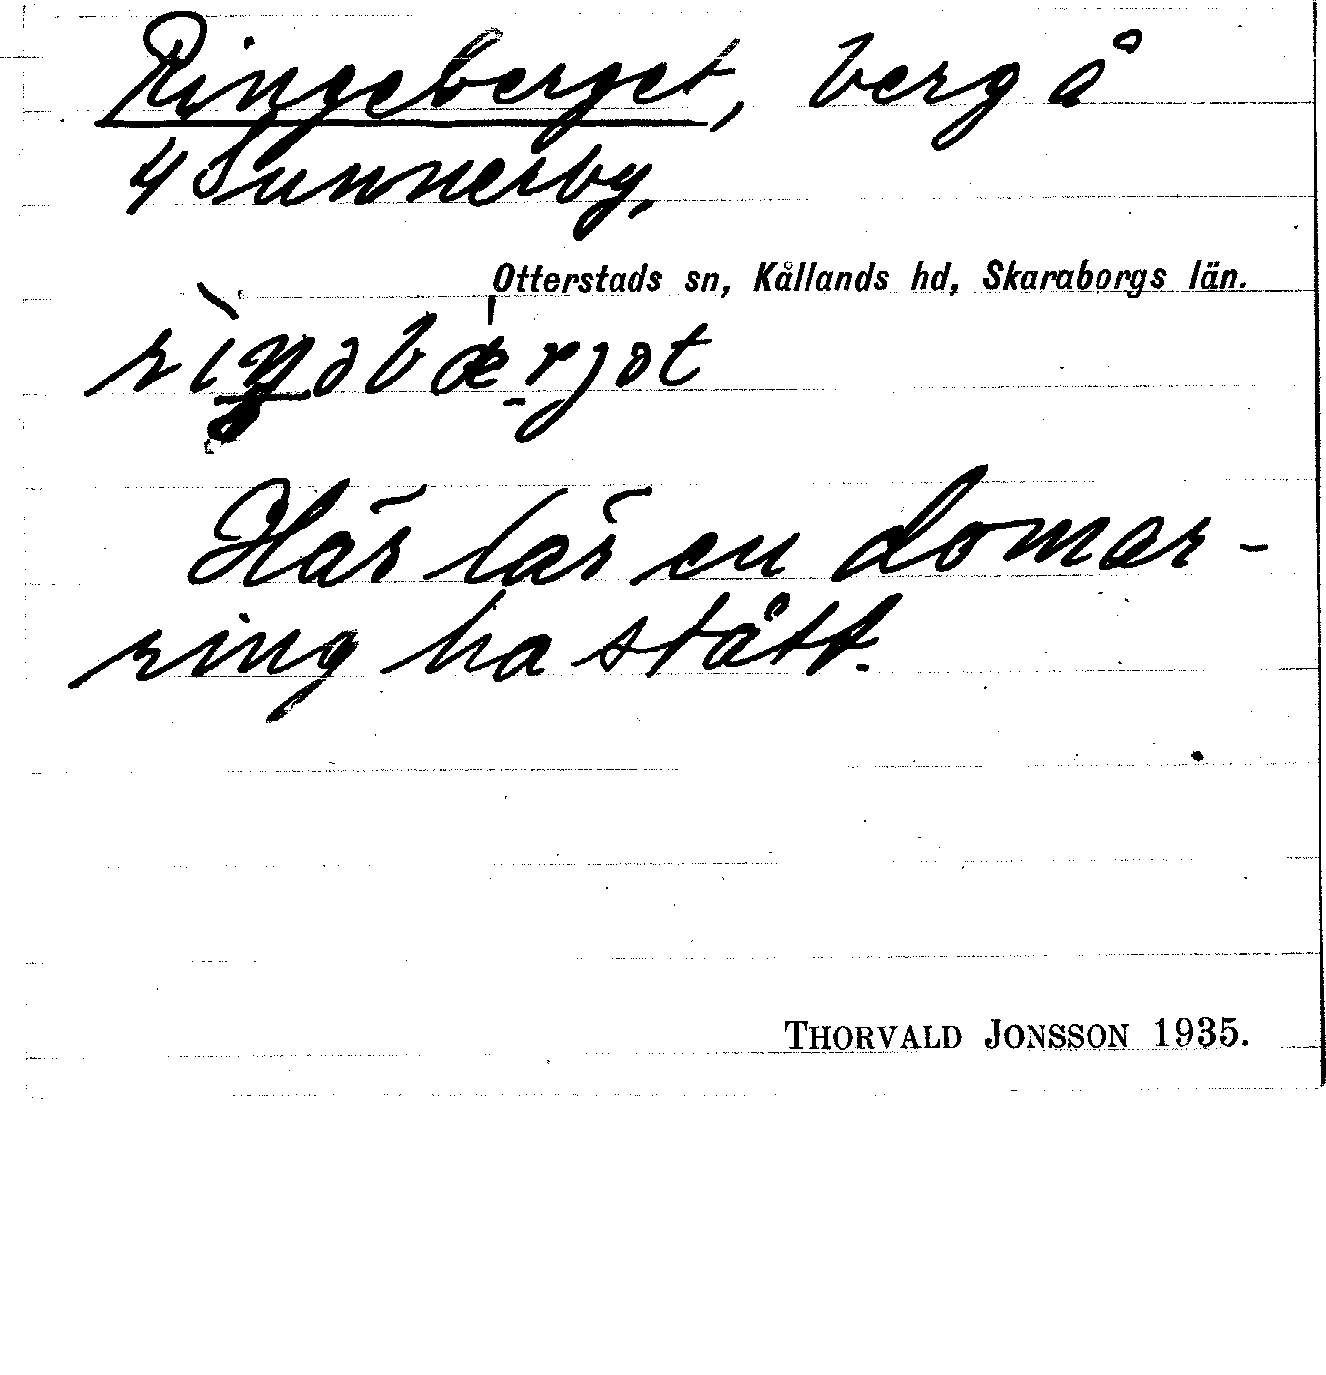 Ringeberget, berg å
4 Sunnerby,
Otterstads sn, Kållands hd, Skaraborgs län.
rìŋəbæ̠rjət
Här lär en domar-
ring ha stått.
THORVALD JONSSON 1935.